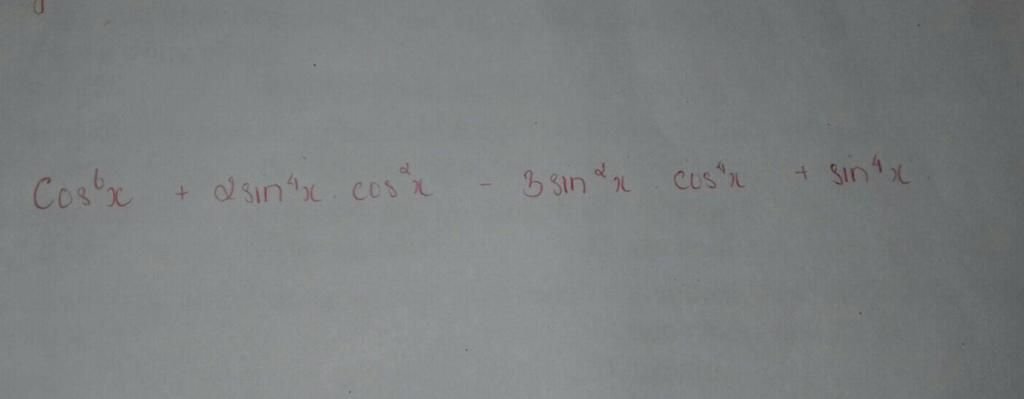 Cos⁶x + 2sin⁴x . cos²x - 3sin²x . cos⁴x + sin⁴x.